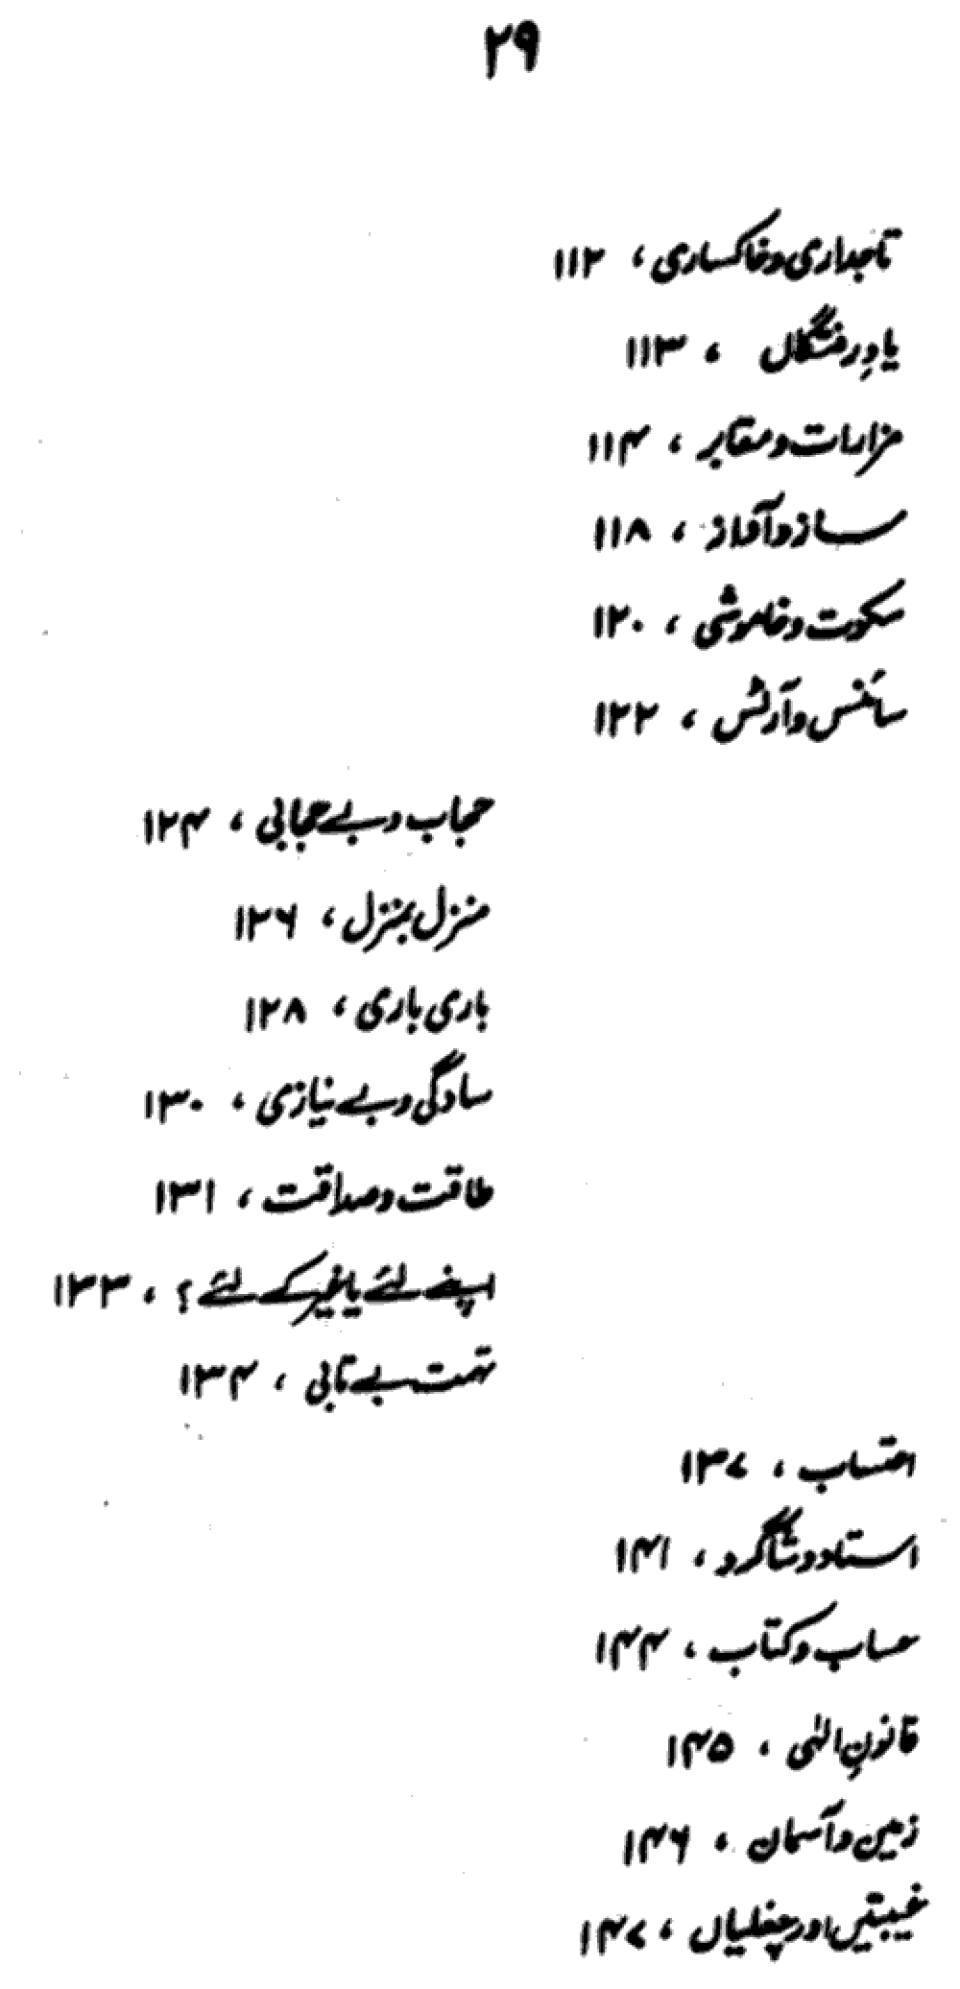 ۲۹
تاجداری و خاکساری ، ۱۱۲
یادِ رفتگاں ، ۱۱۳
مزارات و مقابر ، ۱۱۴
ساز و آواز ، ۱۱۸
سکوت و خاموشی ، ۱۲۰
سائنس و آرٹس ، ۱۲۲
حجاب و بے حجابی ، ۱۲۴
منزل بمنزل ، ۱۲۶
باری باری ، ۱۲۸
سادگی و بے نیازی ، ۱۳۰
طاقت و صداقت ، ۱۳۱
اپنے لئے یا غیر کے لئے ؟ ، ۱۳۳
تہمت بے تابی ، ۱۳۴
احتساب ، ۱۳۷
استاد و شاگرد ، ۱۴۱
حساب و کتاب ، ۱۴۴
قانونِ الٰہی ، ۱۴۵
زمین و آسمان ، ۱۴۶
غیبتیں اور چغلیاں ، ۱۴۷